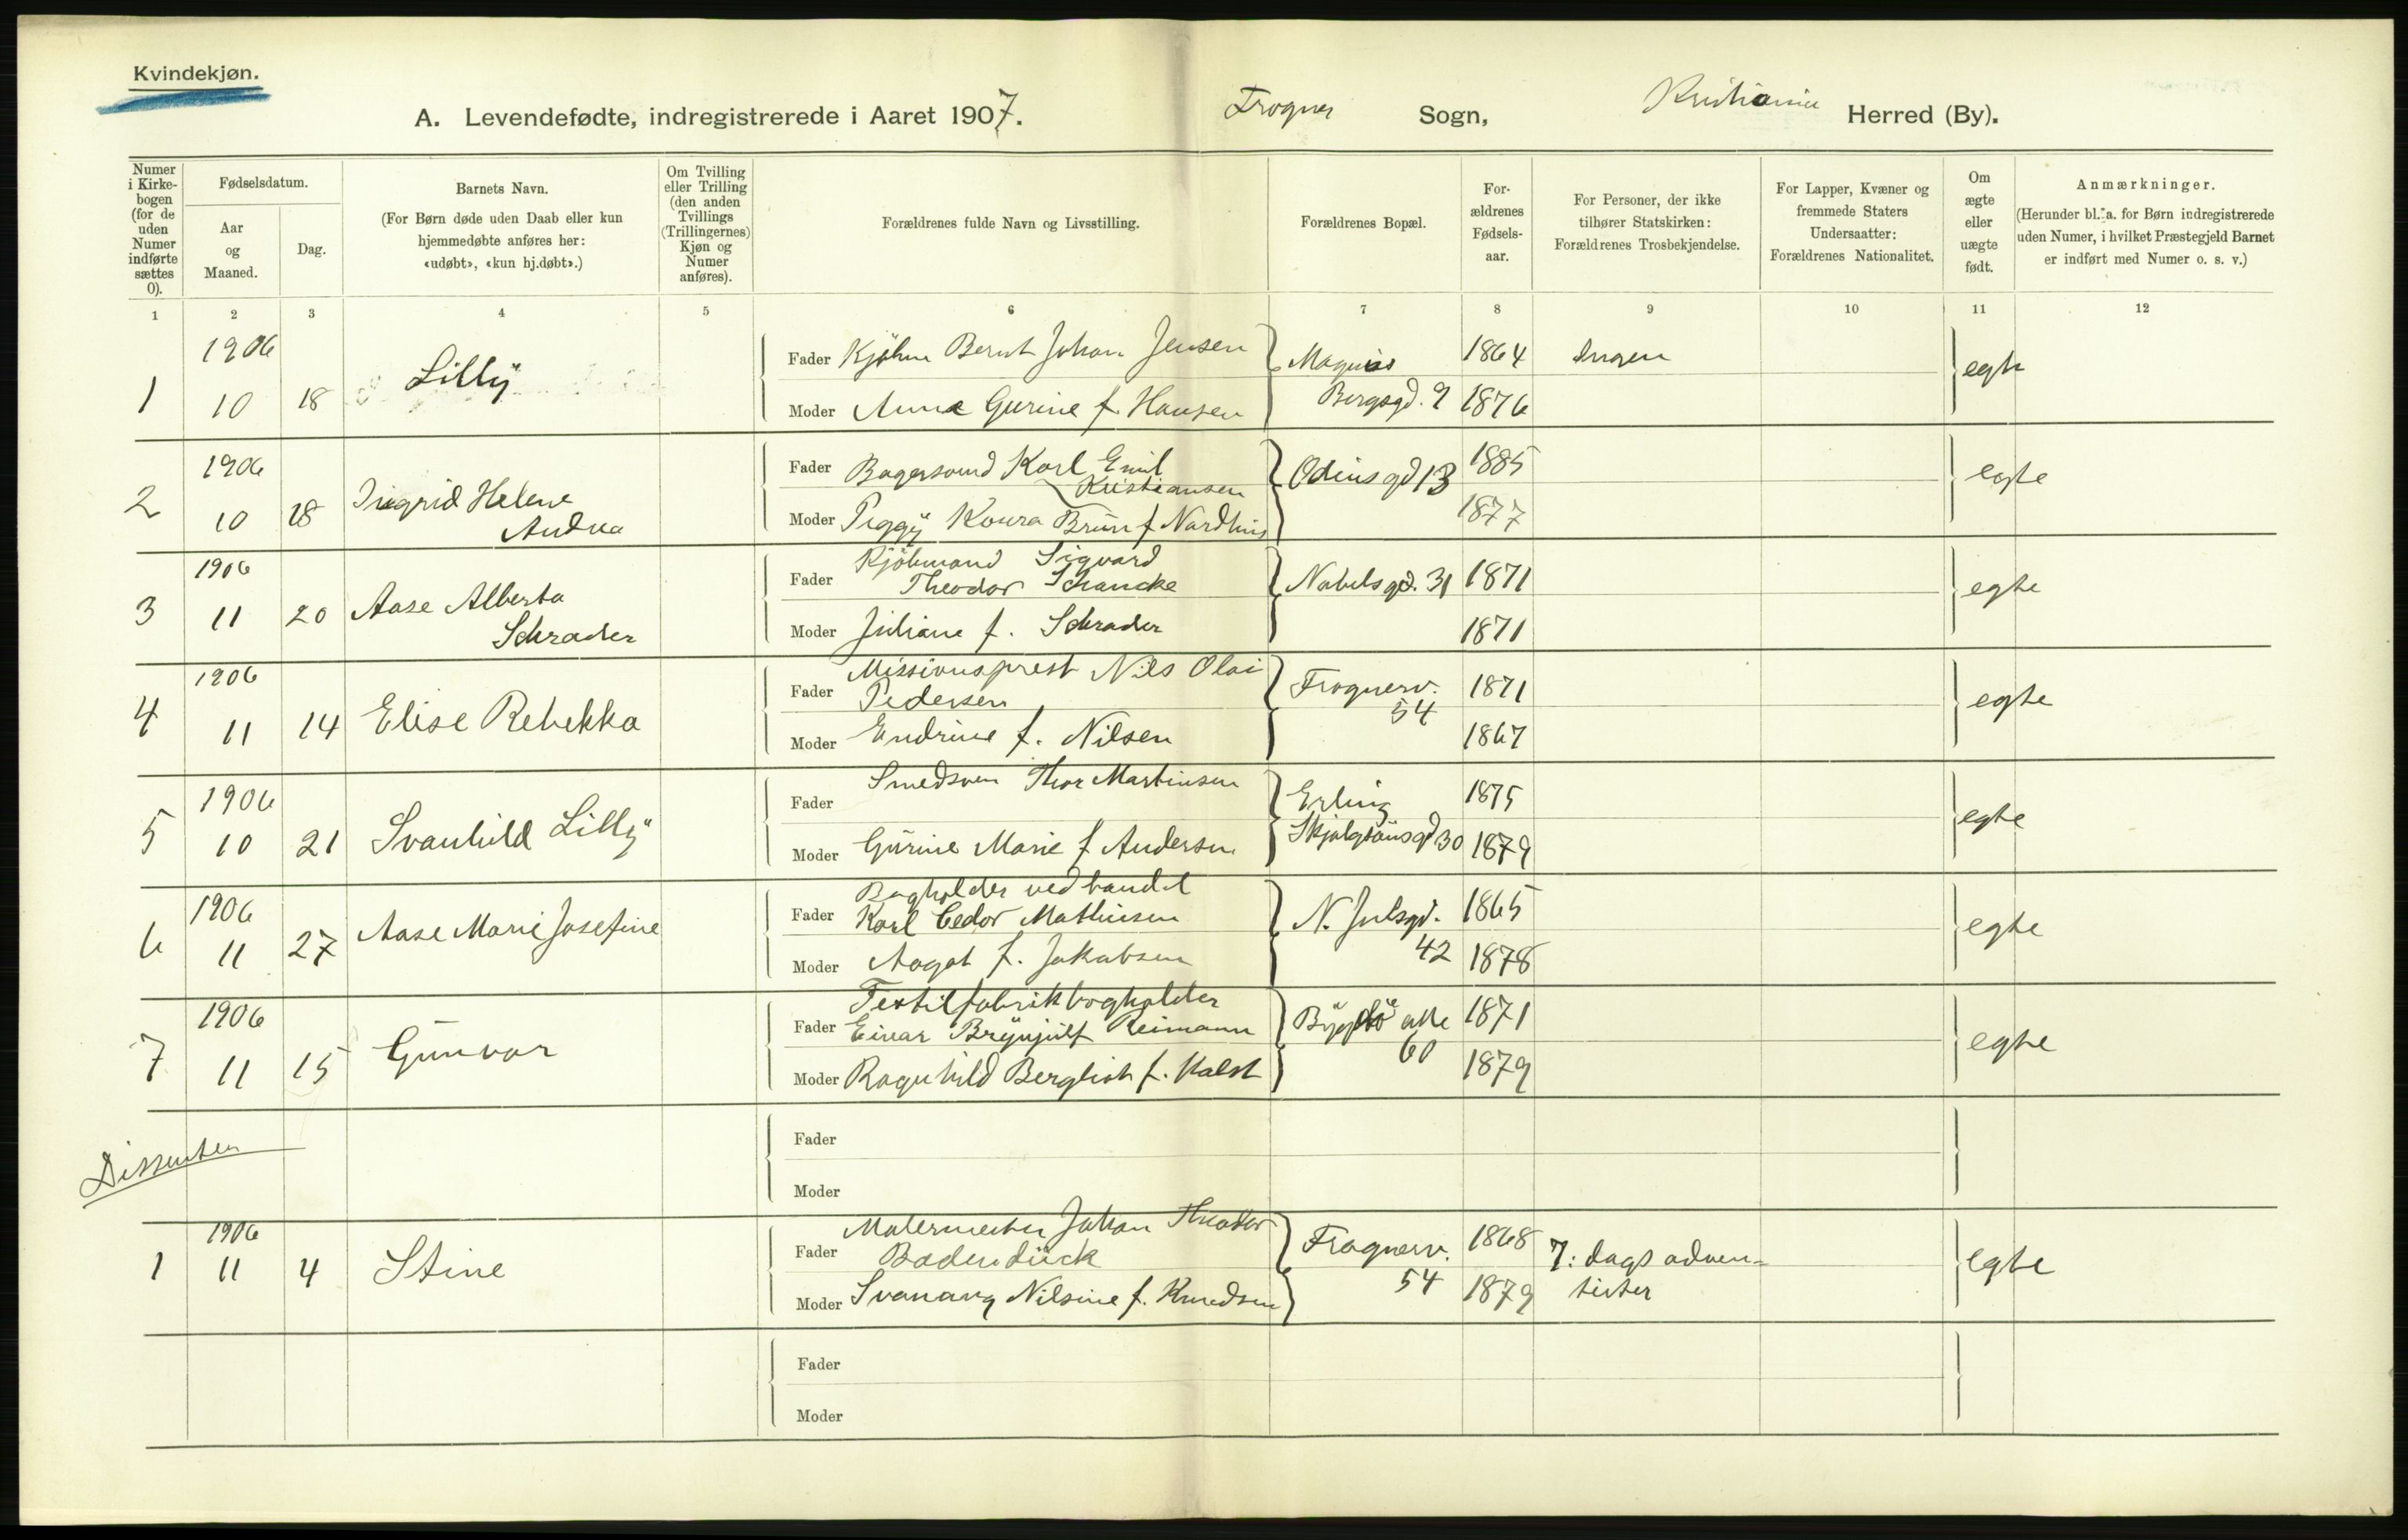 Kvindekjøn.
A. Levendefødte, indregistrerede i Aaret 1907. Frogner Sogn, Kristiania Herred (By).
Numer i Kirkebogen (for de uden Numer indførte sættes 0).
Fødselsdatum.
Aar og Maaned.
Dag.
Barnets Navn.
(For Børn døde uden Daab eller kun hjemmedøbte anføres her: «udøbt», «kun hj.døbt».)
Om Tvilling eller Trilling (den anden Tvillings (Trillingernes) Kjøn og Numer anføres).
Forældrenes fulde Navn og Livsstilling.
Forældrenes Bopæl.
Forældrenes Fødselsaar.
For Personer, der ikke tilhører Statskirken: Forældrenes Trosbekjendelse.
For Lapper, Kvæner og fremmede Staters Undersaatter: Forældrenes Nationalitet.
Om ægte eller uægte født.
Anmærkninger.
(Herunder bl. a. for Børn indregistrerede uden Numer, i hvilket Præstegjeld Barnet er indført med Numer o. s. v.)
1 2 3 4 5 6 7 8 9 10 11 12
1 1906 10 18 Lilly
Fader Kjøbm Bernt Johan Jensen Magnus 1864 Ingen egte
Moder Anna Gurine f. Hansen Bergsgd. 9 1876
2 1906 10 18 Ingrid Helene Andrea
Fader Bagersvend Karl Emil Kristiansen Odins gd 13 1885 egte
Moder Peggy Koura Brun f Nardhus 1877
3 1906 11 20 Aase Alberta Schrader
Fader Kjøbmand Sigvard Theodor Schancke Nobels gd. 31 1871 egte
Moder Juliane f. Schrader 1871
4 1906 11 14 Elise Rebekka
Fader Missionsprest Nils Olai Pedersen Frognerv. 54 1871 egte
Moder Endrine f. Nilsen 1867
5 1906 10 21 Svanhild Lilly
Fader Smedsven Thor Martinsen Erling 1875 egte
Moder Gurine Marie f Andersen Skjalgsonsgd 30 1879
6 1906 11 27 Aase Marie Josefine
Fader Bogholder ved handel Karl Cedor Mathisen N. Julsgd. 42 1865 egte
Moder Aagot f. Jakobsen 1878
7 1906 11 15 Gunvor
Fader Textilfabrikbogholder Einar Brynjulf Reimann Bygdø alle 60 1871 egte
Moder Ragnhild Bergliot f. Kalst 1879
Dissenter
Fader
Moder
1 1906 11 4 Stine
Fader Malermester Johan Theodor Badendück Frognerv. 54 1868 7: dags adven= egte
Moder Svanaug Nilsine f. Knudsen 1879 tister
Fader
Moder